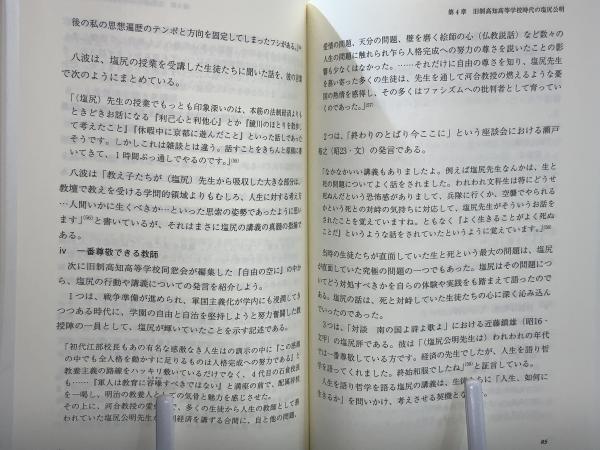 後の私の思想遍歴のテンポと方向を固定してしまったフシがある。
八波は、塩尻の授業を受講した生徒たちに聞いた話を、彼の言葉
で次のようにまとめている。
「（塩尻）先生の授業でもっとも印象深いのは、本筋の法制経済よりも
ときどきお話になる『利己心と利他心』とか『鏡川のほとりを散歩し
て考えたこと』『休暇中に京都に遊んだこと』といった話しであった
そうです。しかしこれは雑談とは違う。話すことをきちんと原稿に書
いてきて、１時間ぶっ通しでやるのです。」
八波は「教え子たちが（塩尻）先生から吸収した大きな部分は、
教壇で教えを受ける学問的領域よりもむしろ、人生に対する考え方
…人間いかに生くべきか…といった思索の姿勢であったように思い
ます」と書いているが、それはまさに塩尻の講義の真髄の指摘で
ある。
ⅳ 一番尊敬できる教師
次に旧制高知高等学校同窓会が編集した『自由の空に』の中か
ら、塩尻の行動や講義についての発言を紹介しよう。
１つは、戦争準備が進められ、軍国主義化が学内にも浸潤してき
つつある時代に、学園の自由と自治を堅持しようと努力奮闘した教
授陣の一員として、塩尻が輝いていたことを示す記述である。
「初代江部校長もあの有名な感激なき人生はの訓示の中に『この感激
の中でも全人格を動かすに足りるものは人格完成への努力である』と
教養主義の路線をハッキリ敷いているだけでなく、４代目の石倉校長
も……『軍人は教育に容喙すべきではない』と満座の前で、配属将校
を一喝し、明治の教養人としての気骨と魅力を感じさせた。
その上に、河合教授の愛弟子で、多くの生徒から人生の教師として慕
われていた塩尻公明先生が法制経済を講ずる合間に、自と他の問題、
第４章 旧制高知高等学校時代の塩尻公明
愛情の問題、天分の問題、壁を磨く絵師の心（仏教説話）など数々の
人生の問題に触れられ乍ら人格完成への努力の尊さを説いたことの影
響も少なくはなかった。……それだけに自由の尊さを知り、塩尻先生
を慕い寄った多くの生徒は、先生を通して河合教授の燃えるような憂
国の熱情を感得し、その多くはファシズムへの批判者として育ってい
くのであった。」
２つは、「終わりのとばり今ここに」という座談会における瀬戸
（昭23・文）の発言である。
「なかなかいい講義もありましたよ。例えば塩尻先生なんかは、生と
死の問題についてよく話をされました。われわれ文科生は特にどうせ
死ぬんだという恐怖感がありまして、兵隊に行くか、空襲でやられる
かという死との対峙の気持ちに対応して、塩尻先生がそういうお話を
されたことを覚えていますね。ともなく『よく生きることがよく死ぬ
ことだ』というような話をされていたというように覚えています。」
当時の生徒が直面していた生と死という最大の問題は、塩尻
が直面していた究極の問題の一つでもあった。塩尻はその問題につ
いてどう対処すべきかを自らの体験や実践をも踏まえて語ったので
ある。塩尻の話は、死と対峙していた生徒たちの心に深く沁み込ん
でいったのであった。
３つは、「対談 南の国よ詩よ歌よ」における近藤 雄（昭16・
文甲）の塩尻評である。彼は「（塩尻公明先生は）われわれの年代
では一番尊敬している方です。経済の先生でしたが、人生を語り哲
学を語ってくれました。終始和服でしたね」と証言している。
人生を語り哲学を語る塩尻の講義は、生徒たちに「人生、如何に
生きるか」を問いかけ、考えさせる契機と
85